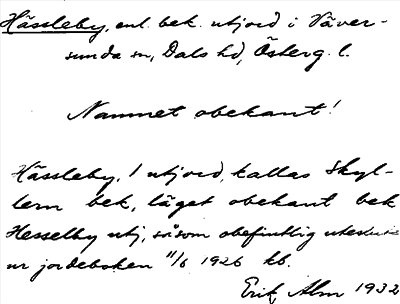 Hässleby, enl. bek. utjord i Väver-
sunda sn, Dals hd, Österg. l.
Namnet obekant!
Hässleby, 1 utjord, kallas Skyl-
lern bek, läget obekant bek
Hesselby utj, såsom obefintlig utesluten
ur jordeboken 11/6 1926 kb.
Erik Alm 1932